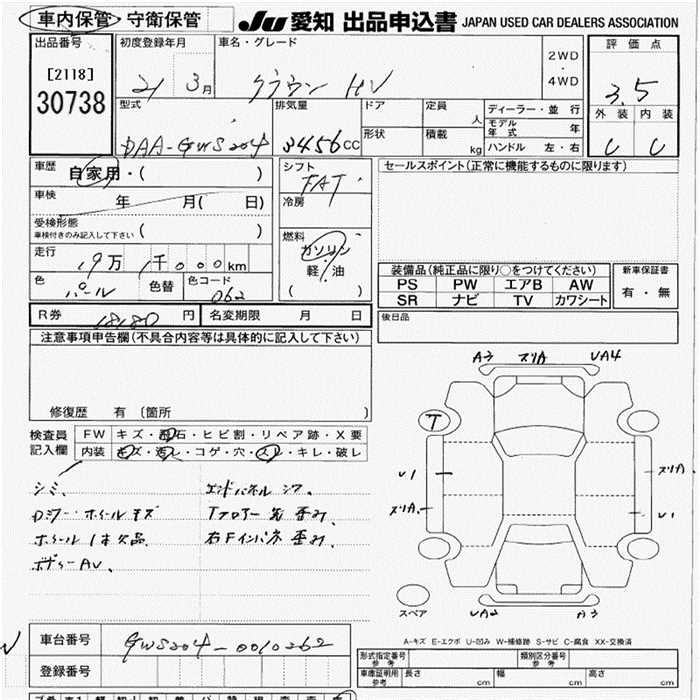 車内保管・守衛保管 JU 愛知 出品申込書 JAPAN USED CAR DEALERS ASSOCIATION
出品番号 初度登録年月 車名・グレード 2WD・4WD 評価点
[2118]
30738
21 3月 クラウン HV 3.5
型式 排気量 ドア 定員 人 ディーラー・並行 外装 内装
DAA-GWS204 3456cc 形状 積載 kg モデル年式 年
ハンドル 左・右 C C
車歴 自家用・( ) シフト FAT セールスポイント(正常に機能するものに限ります)
車検 年 月( 日) 冷房
受検形態 ( )
車検付きのみ記入して下さい
走行 19万 1千000km 燃料 ガソリン
軽・油
( )
色 パール 色替 色コード 062
装備品(純正品に限り○をつけてください) 新車保証書
PS PW エアB AW 有・無
SR ナビ TV カワシート
R券 18180円 名変期限 月 日 後日品
注意事項申告欄(不具合内容等は具体的に記入して下さい)
修復歴 有(箇所 )
検査員記入欄 FW キズ・飛石・ヒビ割・リペア跡・X要
内装 キズ・汚レ・コゲ・穴・スレ・キレ・破レ
シミ、 エンドパネル シワ、
ロジワー・ホイール キズ Tフロアー 先 歪み、
ホイール 1ホ欠品 右Fインパネ 歪み、
ボディーAV、
A3 スリA UA4
T
U1 スリA
スリA U1
スペア UA2 A3
A-キズ E-エクボ U-凹み W-補修跡 S-サビ C-腐食 XX-交換済
車台番号 GWS204-0010262
登録番号
形式指定番号 参考 類別区分番号 参考
車庫証明用 参考 長さ cm 幅 cm 高さ cm